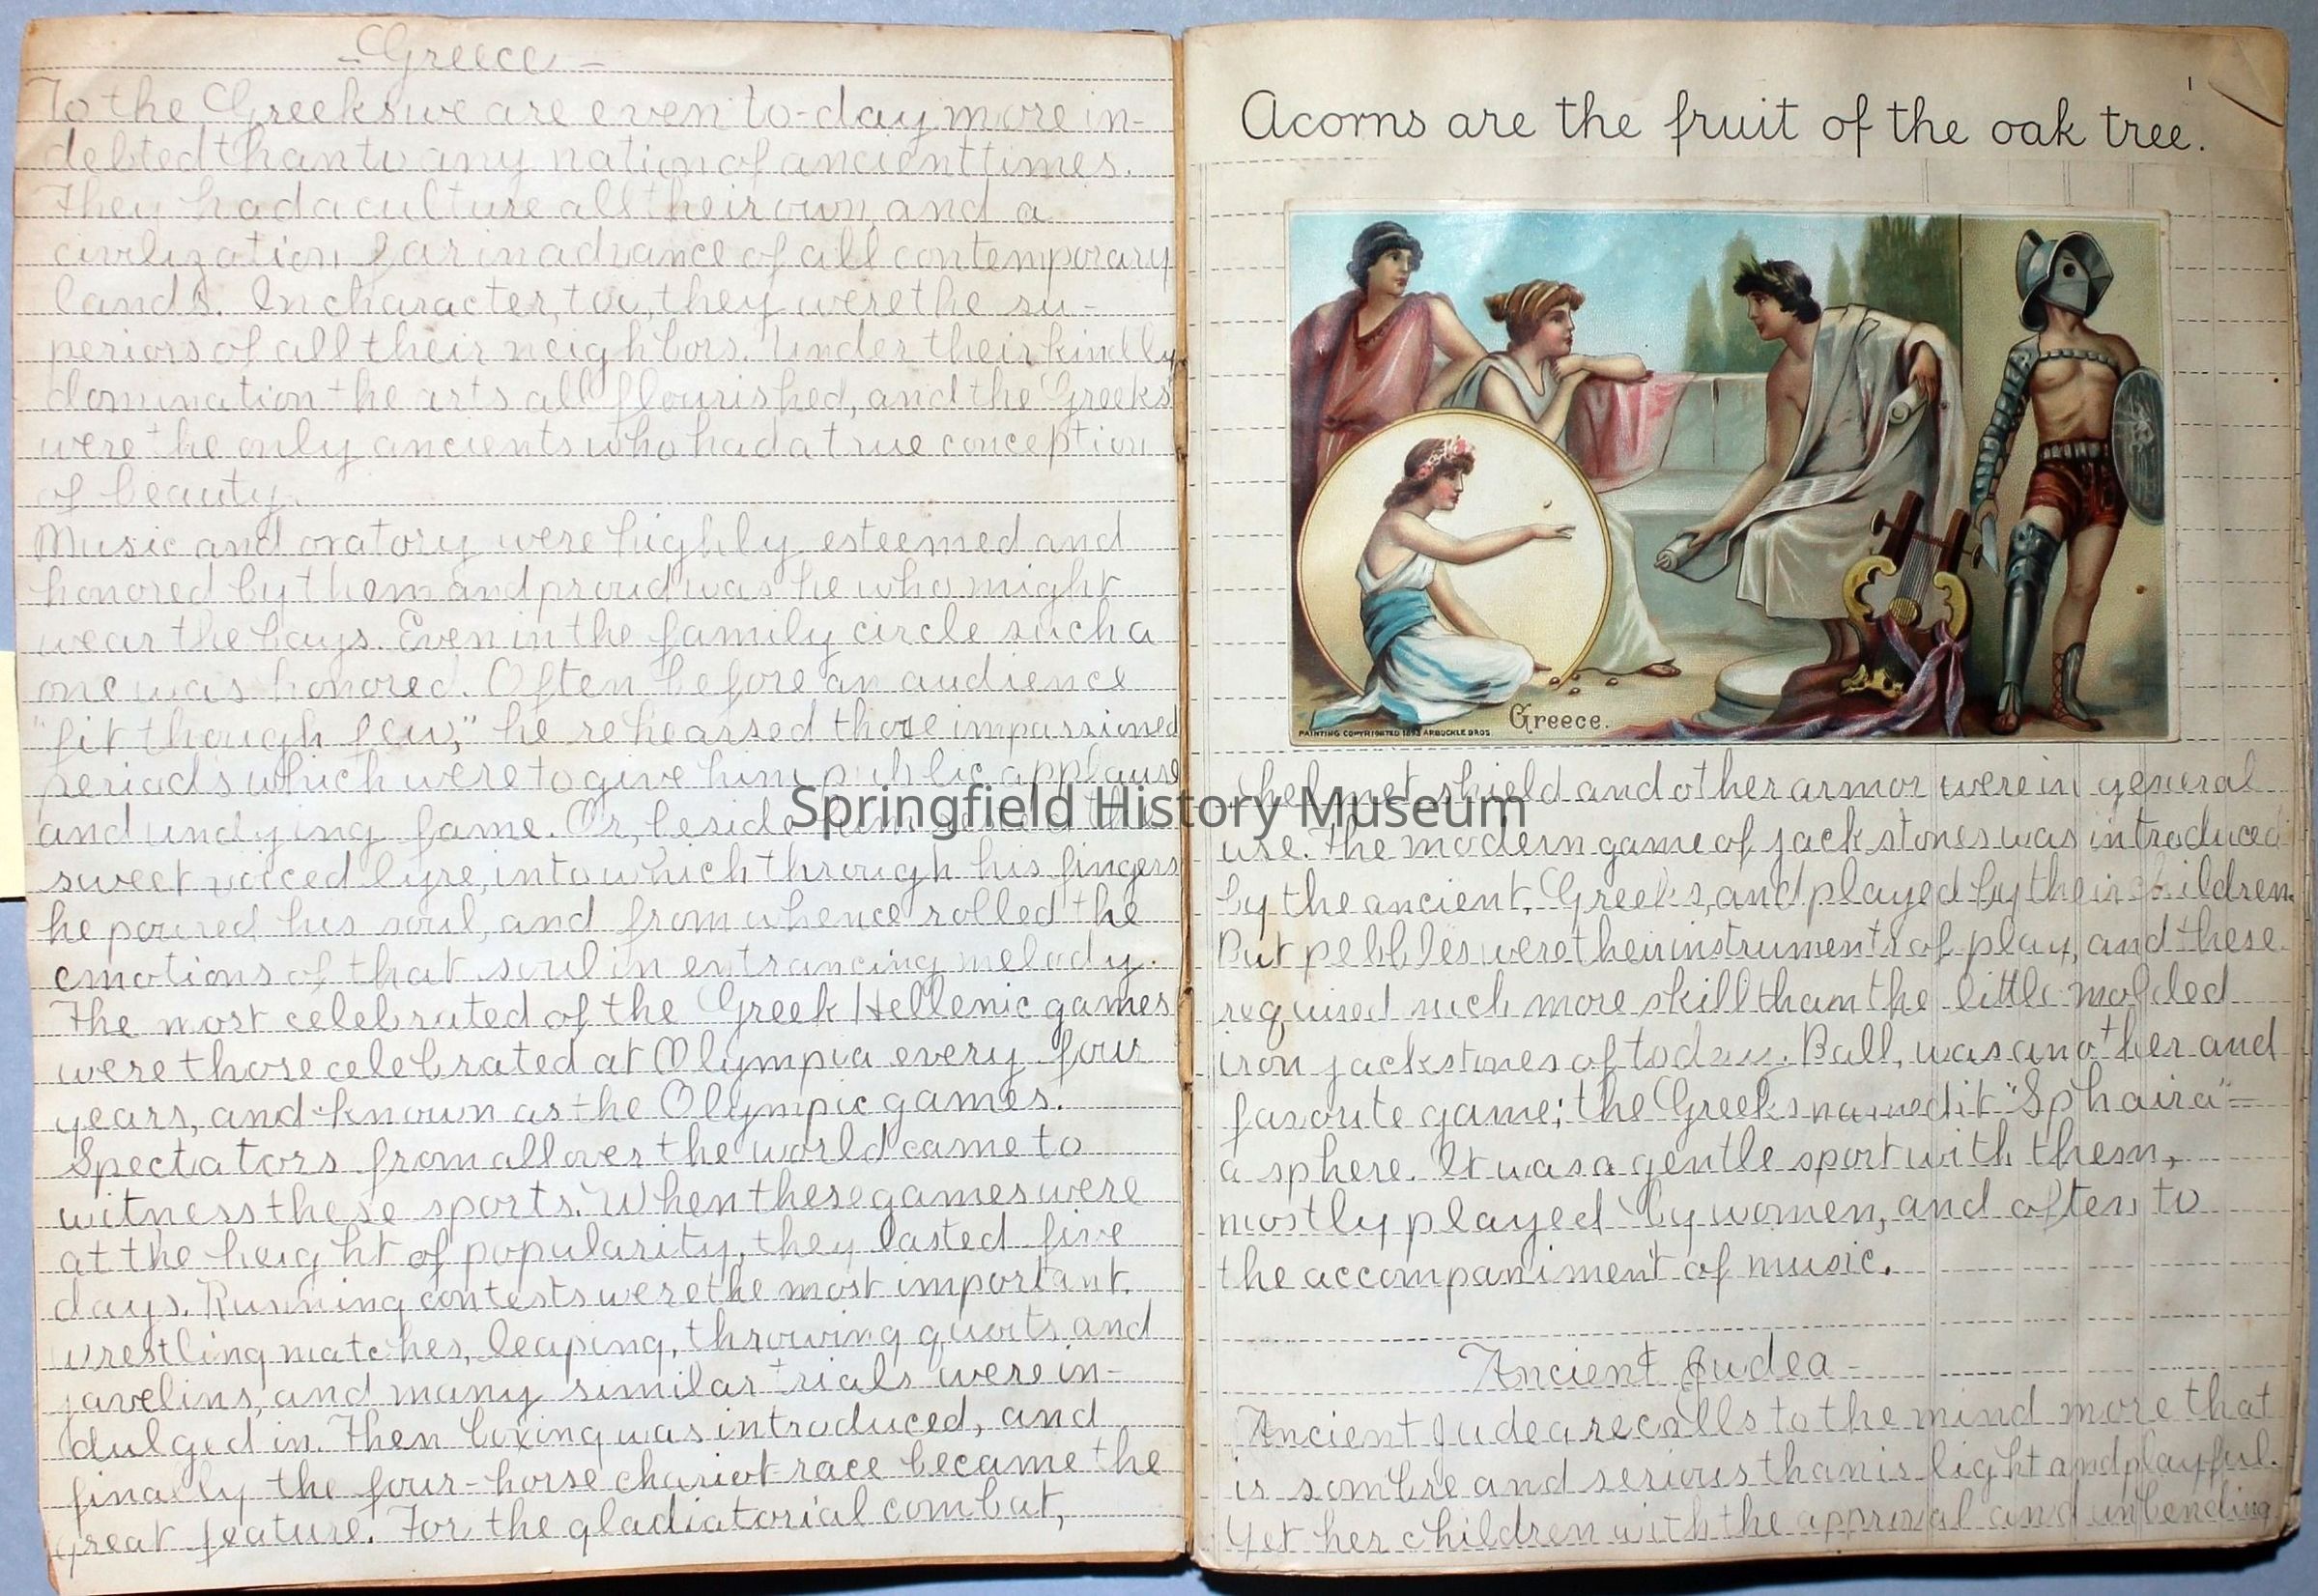 - Greece -
To the Greeks we are even to-day more in-
debted than to any nation of ancient times.
They had a culture all their own, and a
civilization far in advance of all contemporary
lands. In character, too, they were the su-
periors of all their neighbors. Under their kindly
domination the arts all flourished, and the Greeks
were the only ancients who had a true conception
of beauty.
Music and oratory were highly esteemed and
honored by them and proud was he who might
wear the bays. Even in the family circle such a
one was honored. Often before an audience
"fit though few," he rehearsed those impassioned
periods which were to give him public applause
and undying fame. Or, beside him stood the
sweet voiced lyre, into which through his fingers
he poured his soul, and from whence rolled the
emotions of that soul in entrancing melody.
The most celebrated of the Greek Hellenic games
were those celebrated at Olympia every four
years, and known as the Olympic games.
Spectators from all over the world came to
witness these sports. When these games were
at the height of popularity, they lasted five
days. Running contests were the most important.
wrestling matches, leaping, throwing quoits and
javelins, and many similar trials were in-
dulged in. Then boxing was introduced, and
finally the four-horse chariot race became the
great feature. For the gladiatorial combat,
Acorns are the fruit of the oak tree.
Greece.
PAINTING COPYRIGHTED 1893 ARBUCKLE BROS
the helmet, shield and other armor were in general
use. The modern game of jack stones was introduced
by the ancient, Greeks, and played by their children
But pebbles were their instruments of play, and these
required much more skill than the little molded
iron jackstones of today. Ball, was another and
favorite game; the Greeks named it "Sphaira"-
a sphere. It was a gentle sport with them,
mostly played by women, and often to
the accompaniment of music.
Ancient Judea -
Ancient Judea recalls to the mind more that
is sombre and serious than is light and playful.
Yet her children with the approval and unbending
Springfield History Museum